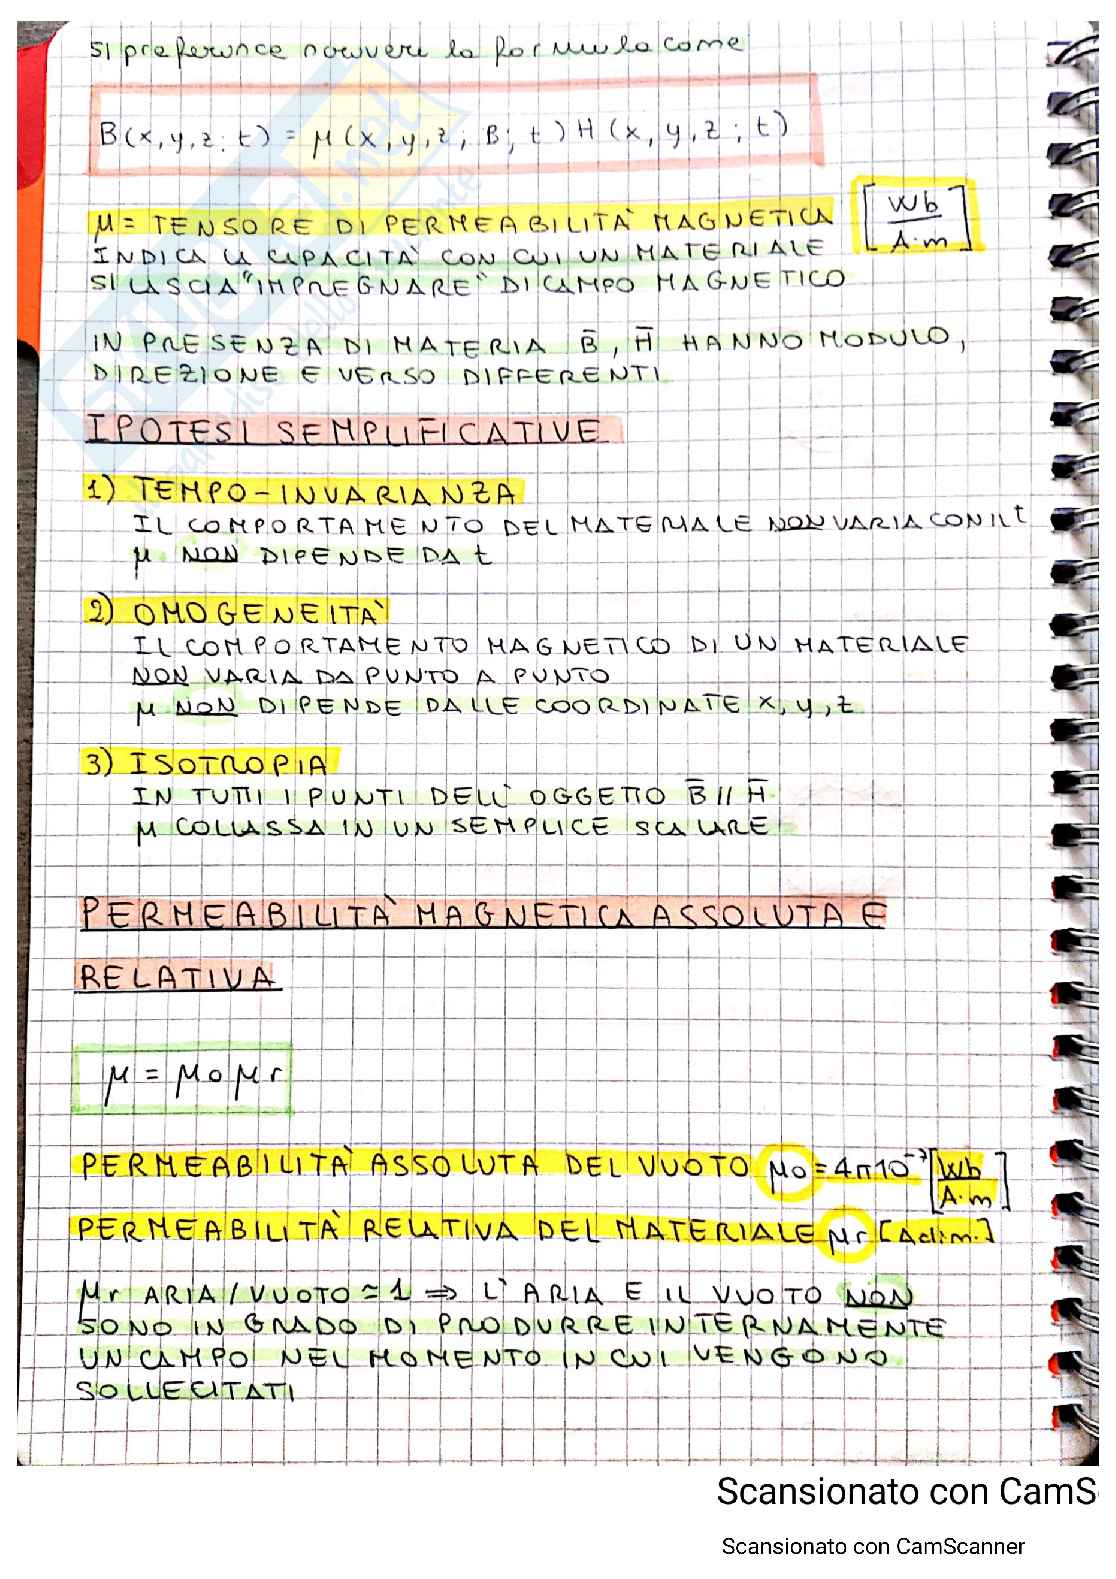 si preferisce scrivere la formula come
B(x,y,z;t) = μ(x,y,z;B;t) H(x,y,z;t)
μ= TENSORE DI PERMEABILITÀ MAGNETICA [Wb/A·m]
INDICA LA CAPACITÀ CON CUI UN MATERIALE
SI LASCIA "IMPREGNARE" DI CAMPO MAGNETICO
IN PRESENZA DI MATERIA B̅, H̅ HANNO MODULO,
DIREZIONE E VERSO DIFFERENTI
IPOTESI SEMPLIFICATIVE
1) TEMPO-INVARIANZA
IL COMPORTAMENTO DEL MATERIALE NON VARIA CON IL t
μ NON DIPENDE DA t
2) OMOGENEITÀ
IL COMPORTAMENTO MAGNETICO DI UN MATERIALE
NON VARIA DA PUNTO A PUNTO
μ NON DIPENDE DALLE COORDINATE x, y, z
3) ISOTROPIA
IN TUTTI I PUNTI DELL'OGGETTO B̅ // H̅
μ COLLASSA IN UN SEMPLICE SCALARE
PERMEABILITÀ MAGNETICA ASSOLUTA E
RELATIVA
μ = μ0 μr
PERMEABILITÀ ASSOLUTA DEL VUOTO μ0 = 4π10⁻⁷ [Wb/A·m]
PERMEABILITÀ RELATIVA DEL MATERIALE μr [Adim.]
μr ARIA/VUOTO ≃ 1 ⇒ L'ARIA E IL VUOTO NON
SONO IN GRADO DI PRODURRE INTERNAMENTE
UN CAMPO NEL MOMENTO IN CUI VENGONO
SOLLECITATI
Scansionato con CamS
Scansionato con CamScanner